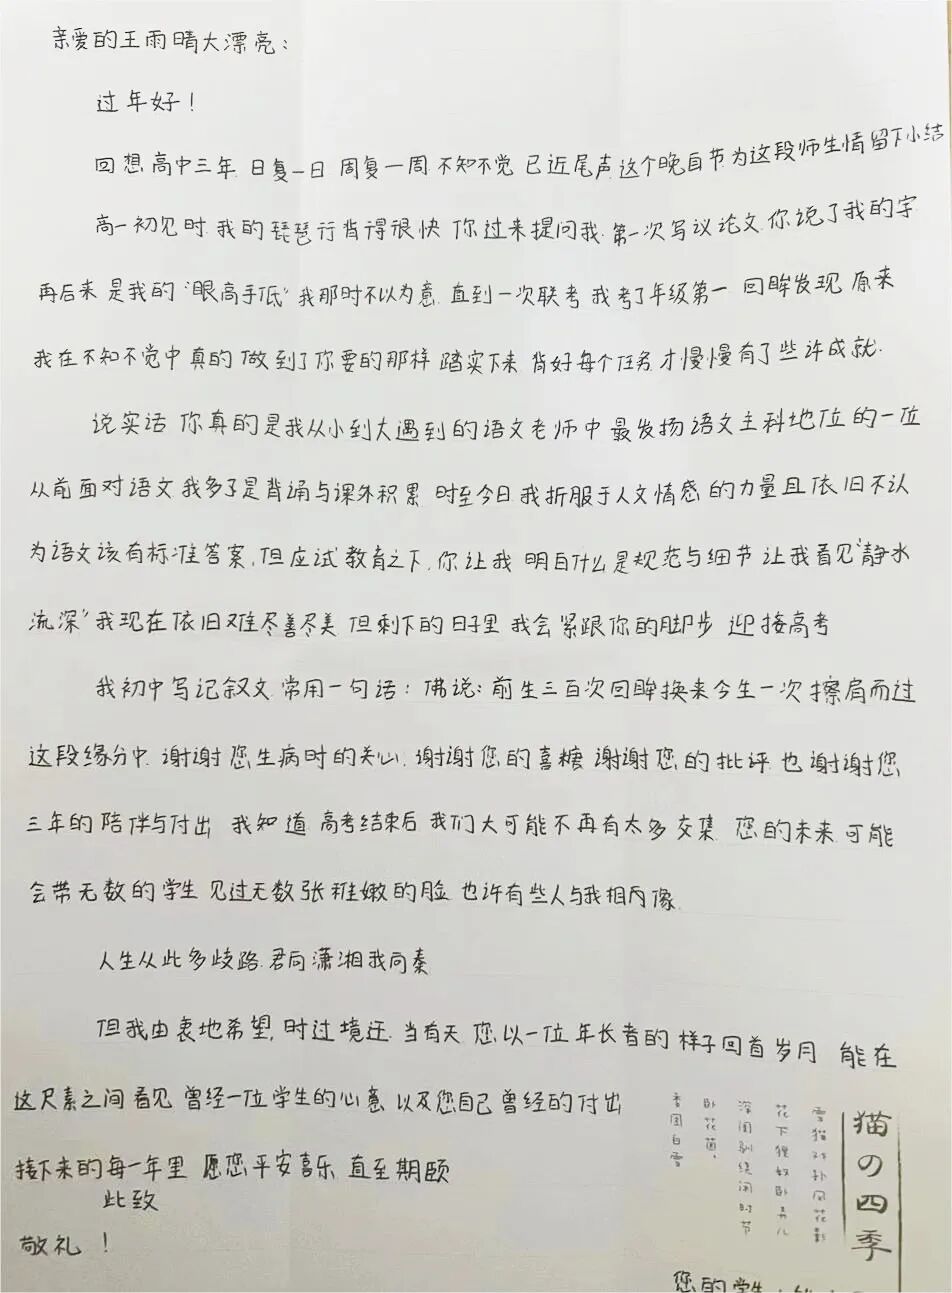 亲爱的王雨晴大漂亮：
过年好！
回想高中三年 日复一日 周复一周 不知不觉 已近尾声 这个晚自节 为这段师生情留下小结
高一初见时 我的琵琶行背得很快 你过来提问我.第一次写议论文.你说了我的字
再后来 是我的“眼高手低” 我那时不以为意 直到一次联考 我考了年级第一 回眸发现 原来
我在不知不觉中真的 做到了你要的那样 踏实下来 背好每个任务 才慢慢有了些许成就.
说实话 你真的是我从小到大遇到的语文老师中 最发扬语文主科地位的一位
从前面对语文 我多了是背诵与课外积累 时至今日 我折服于人文情感的力量且依旧不认
为语文该有标准答案,但应试教育之下.你让我 明白什么是规范与细节 让我看见“静水
流深” 我现在依旧难尽善尽美 但剩下的日子里 我会紧跟你的脚步 迎接高考
我初中写记叙文.常用一句话：佛说：前生三百次回眸换来今生一次擦肩而过
这段缘分中.谢谢您生病时的关心.谢谢您的喜糖 谢谢您的批评 也谢谢您
三年的陪伴与付出 我知道 高考结束后 我们大可能不再有太多交集 您的未来可能
会带无数的学生 见过无数张稚嫩的脸 也许有些人与我相像
人生从此多歧路.君向潇湘我向秦
但我由衷地希望,时过境迁.当有天 您以一位年长者的样子回首岁月 能在
这尺素之间看见 曾经一位学生的心意 以及您自己曾经的付出
接下来的每一年里 愿您平安喜乐 直至期颐
此致
敬礼！
猫の四季
雪猫戏扑风花影
花下狸奴卧弄儿
深闺驯绕闲时节
卧花茵，
香团白雪
您的学生：